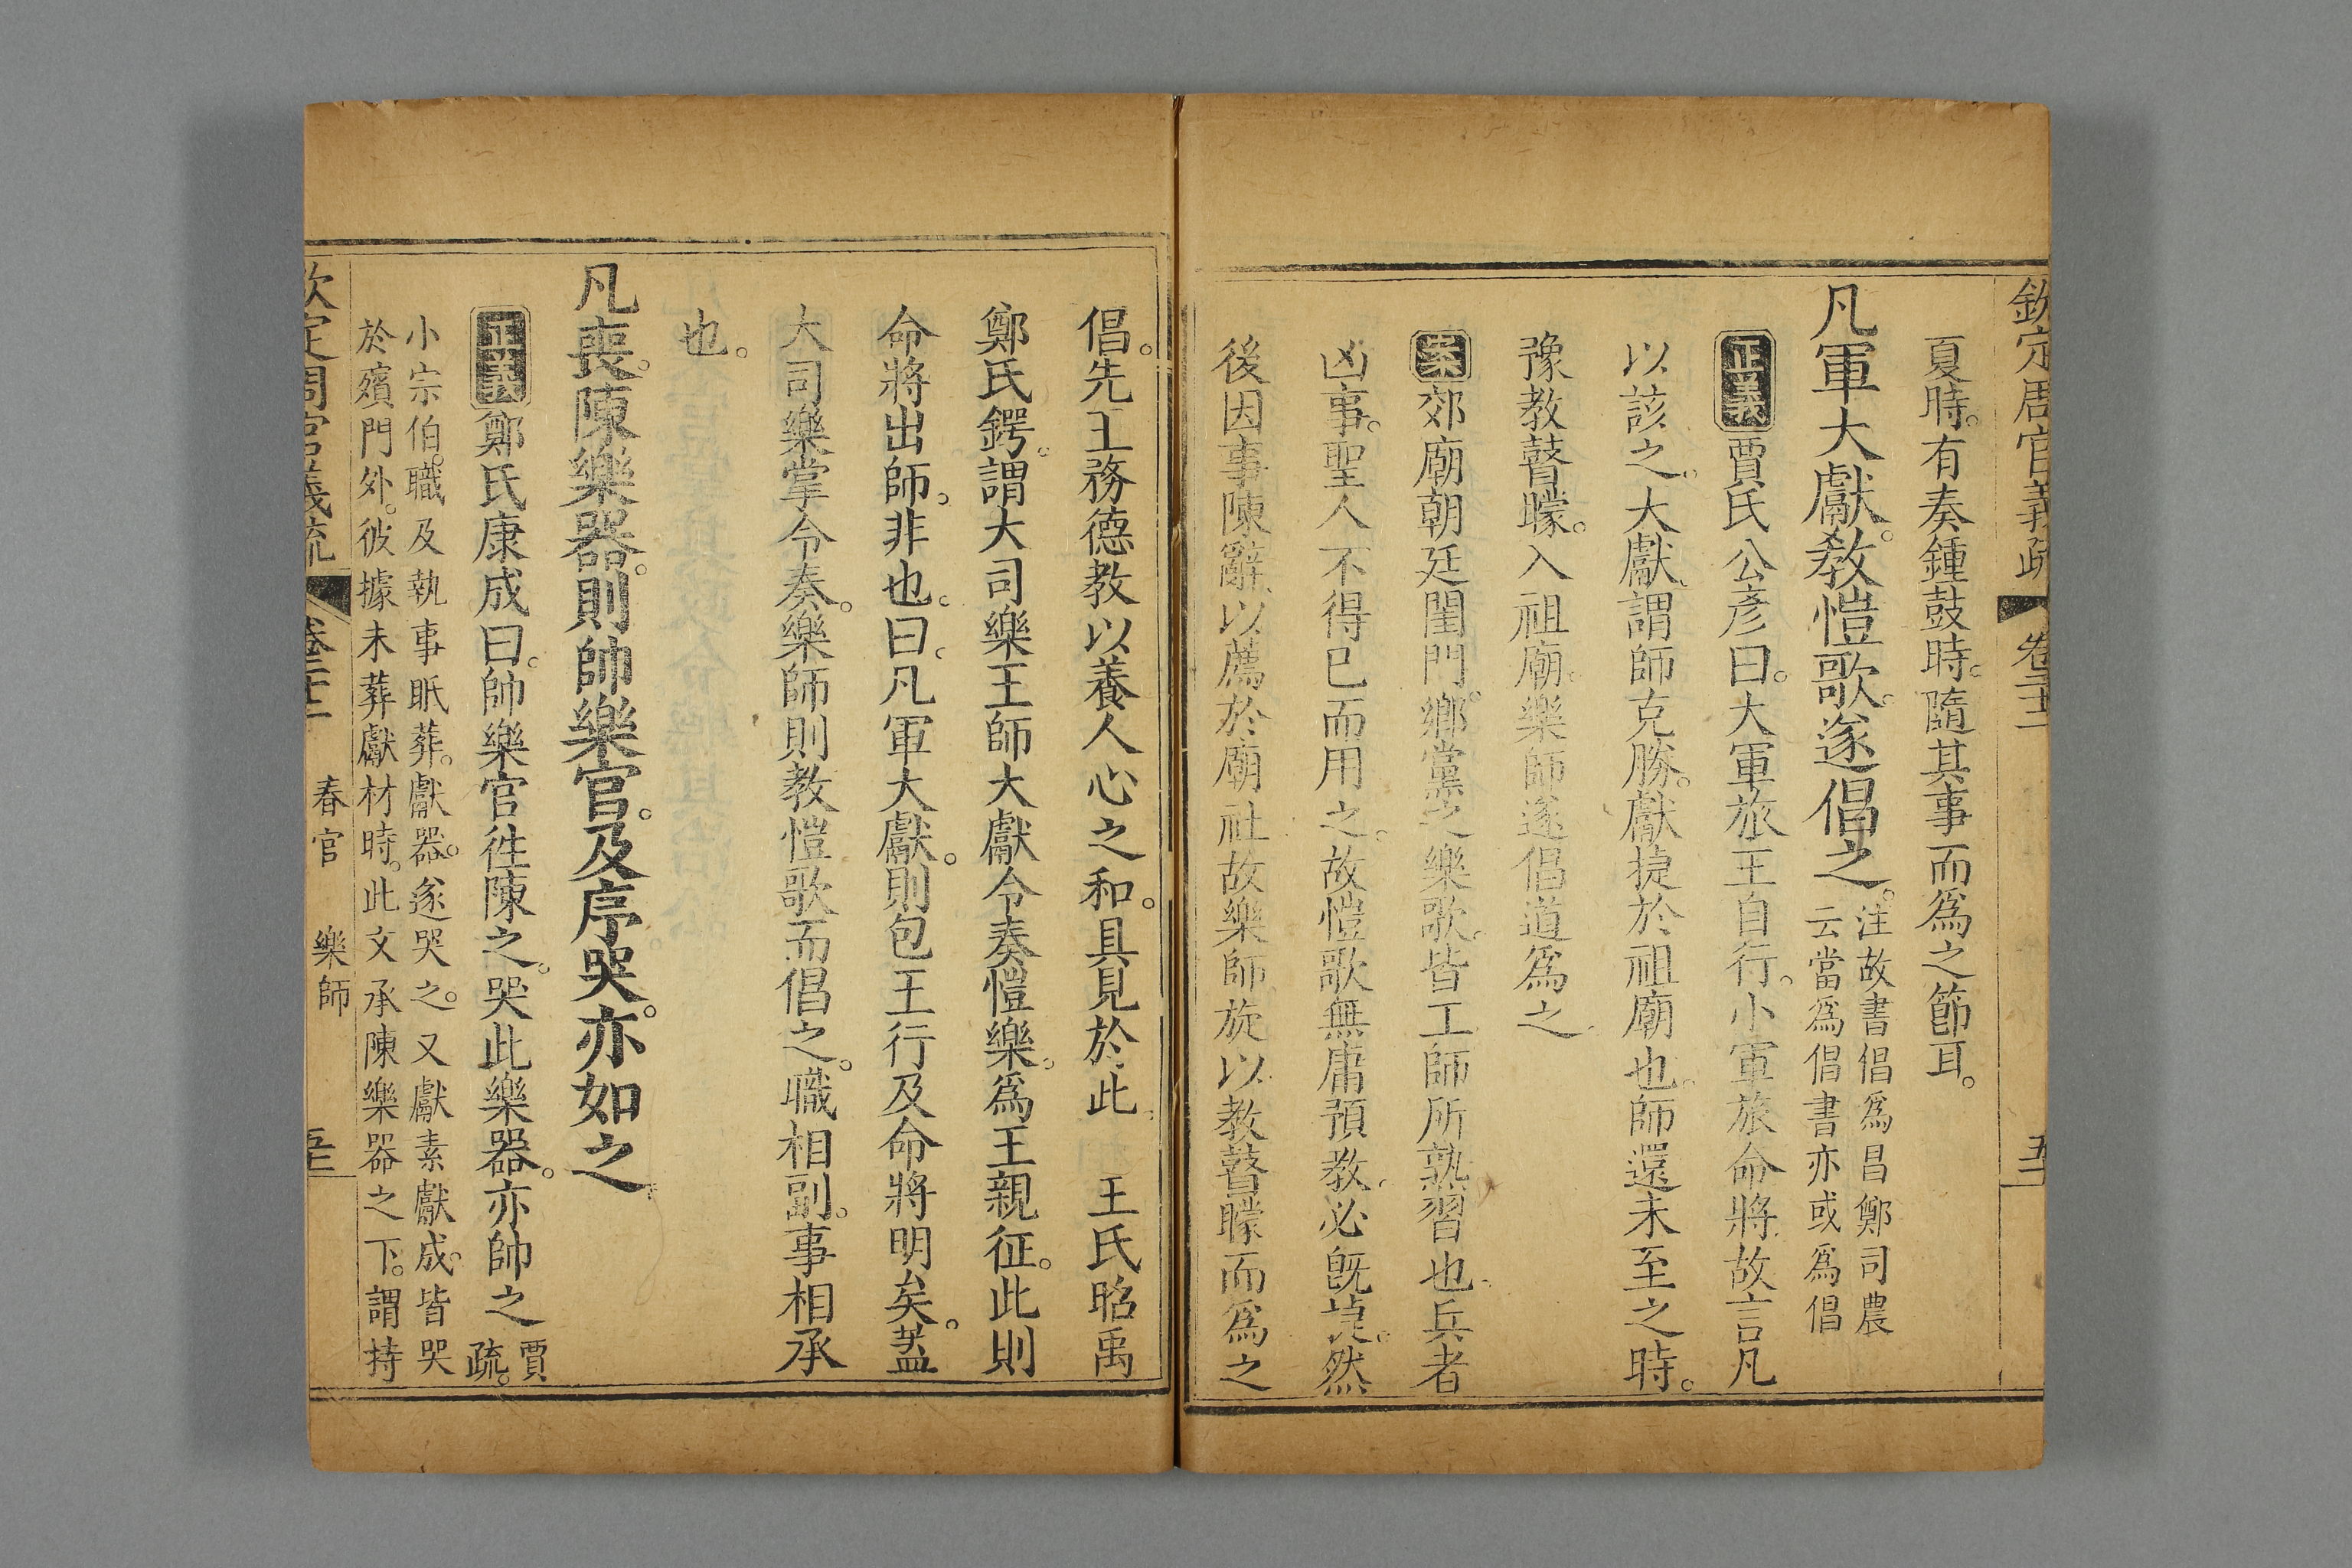 欽定周官義疏 卷二十二 五十二
夏時。有奏鍾鼓時。隨其事而爲之節耳。
凡軍大獻。教愷歌。遂倡之。
注故書倡爲昌鄭司農
云當爲倡書亦或爲倡
正義賈氏公彥曰。大軍旅王自行。小軍旅命將。故言凡
以該之。大獻。謂師克勝。獻捷於祖廟也。師還未至之時。
豫教瞽矇。入祖廟。樂師遂倡道爲之
案郊廟朝廷閨門。鄉黨之樂歌。皆工師所熟習也。兵者
凶事。聖人不得已而用之。故愷歌無庸預教。必旣捷。然
後因事陳辭。以薦於廟社故樂師。旋以教瞽矇而爲之
倡。先王務德教以養人心之和。具見於此。 王氏昭禹
鄭氏鍔。謂大司樂王師大獻令奏愷樂。爲王親征。此則
命將出師。非也。曰。凡軍大獻。則包王行及命將明矣。蓋
大司樂掌令奏。樂師則教愷歌而倡之。職相副。事相承
也。
凡喪。陳樂器。則帥樂官。及序哭。亦如之。
正義鄭氏康成曰。帥樂官往陳之。哭此樂器。亦帥之
賈
疏。
小宗伯。職及執事眡葬。獻器。遂哭之。又獻素獻成。皆哭
於殯門外。彼據未葬獻材時。此文承陳樂器之下。謂持
欽定周官義疏 卷三十二 春官 樂師 五十三